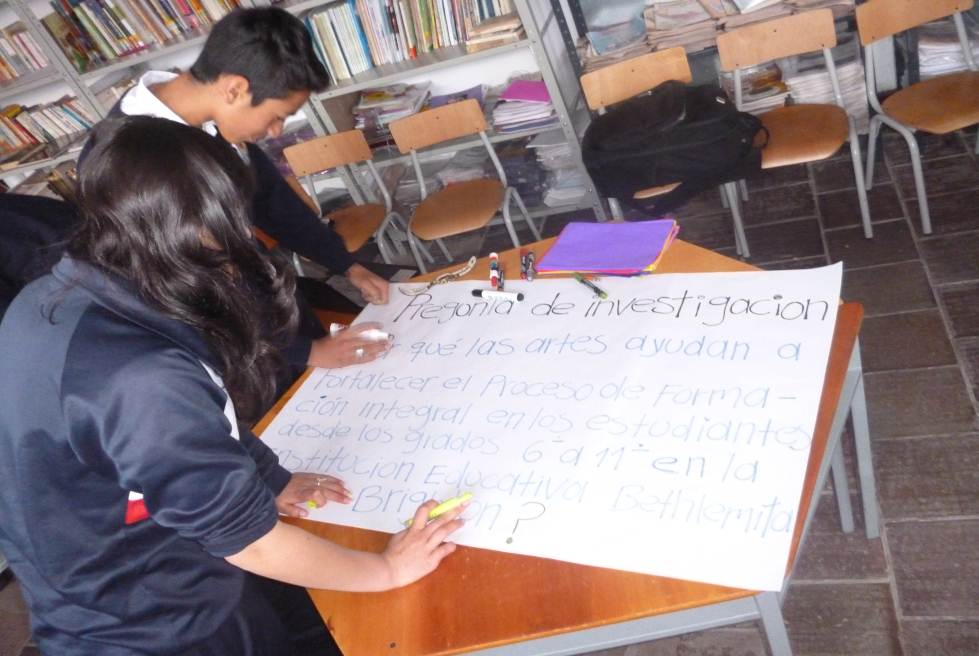 Pregonta de investigacion
qué las artes ayudan a
Fortalecer el Proceso de Forma-
ción integral en los estudiantes
desde los grados 6° a 11° en la
nstitucion Educativa Bethlemita
Brig on ?